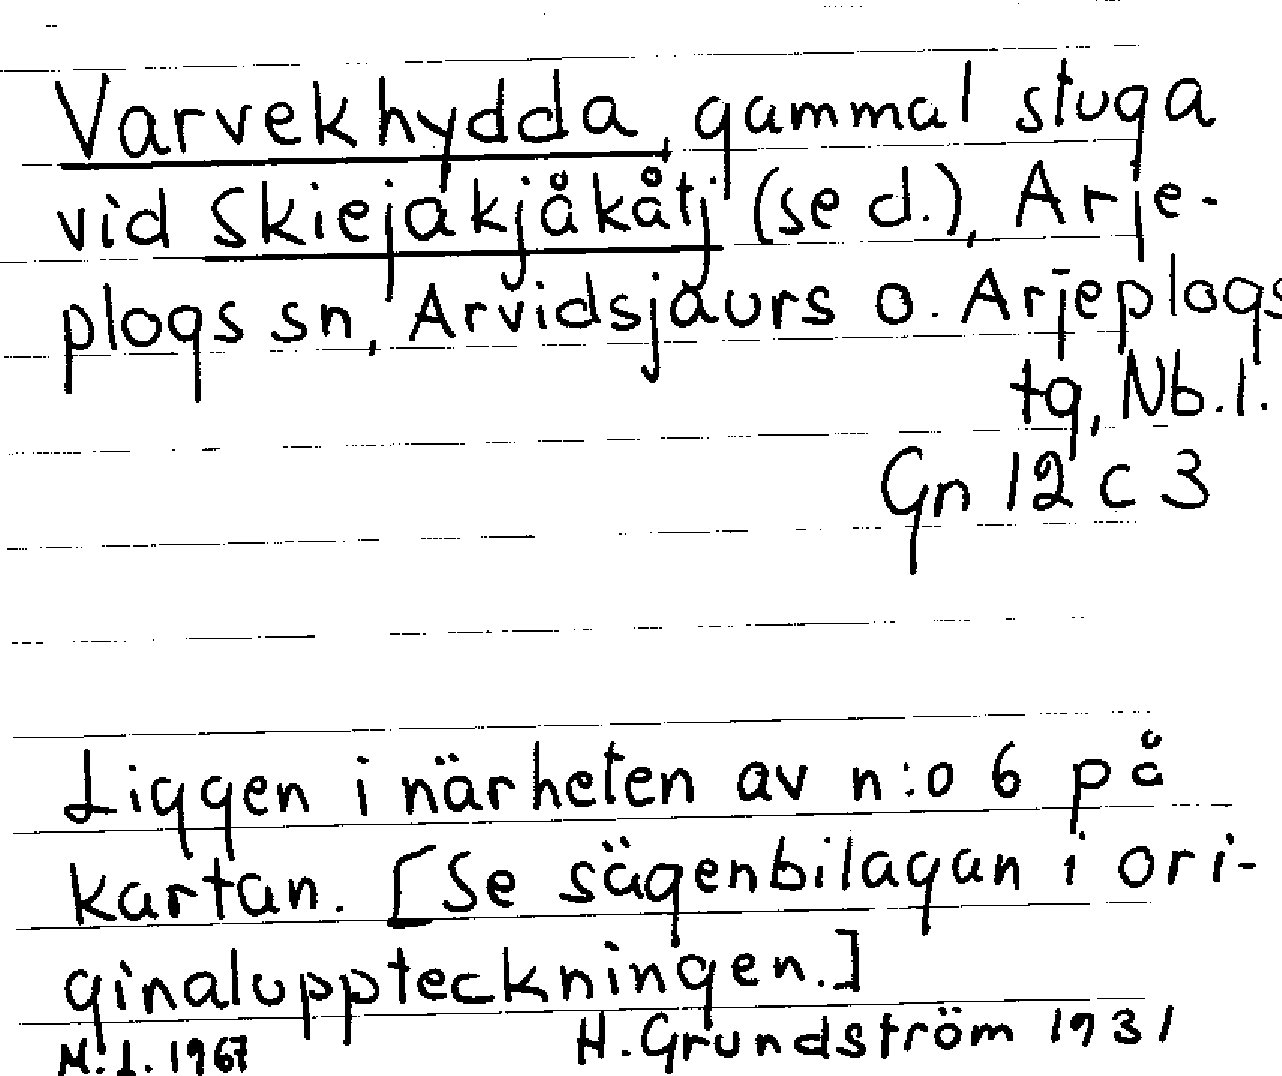 Varvekhydda, gammal stuga
vid Skiejakjåkåtj (se d.), Arje-
plogs sn, Arvidsjaurs o. Arjeplogs
tg, Nb.l.
Gn 12 c 3
Liggen i närheten av n:o 6 på
kartan. [Se sägenbilagan i ori-
ginaluppteckningen.]
M.I. 1967 H. Grundström 1931